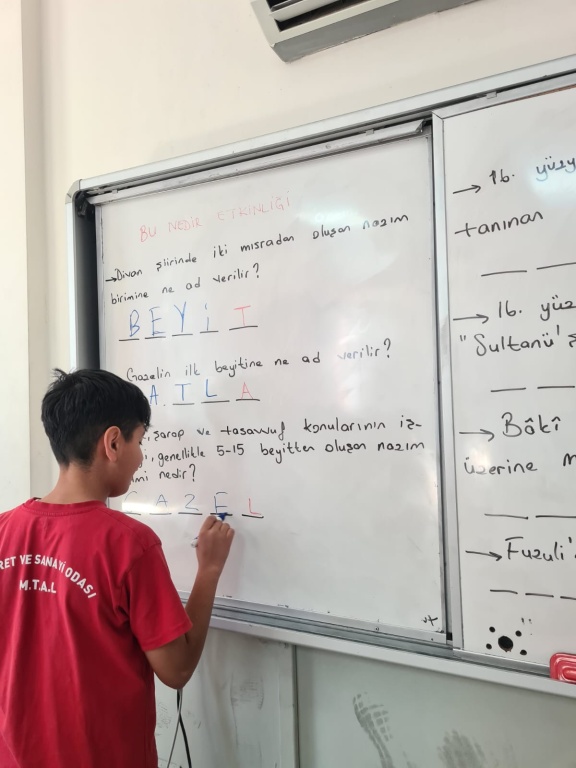 BU NEDİR ETKİNLİĞİ
→Divan şiirinde iki mısradan oluşan nazım
birimine ne ad verilir?
B E Y İ T
Gazelin ilk beyitine ne ad verilir?
A T L A
şarap ve tasavvuf konularının iş-
genellikle 5-15 beyitten oluşan nazım
nedir?
G A Z E L
→ 16. yüzy
tanınan
→ 16. yüz
"Sultanü'ş
→ Bâkî
üzerine m
→ Fuzuli'
RET VE SANAYİ ODASI
M.T.A.L